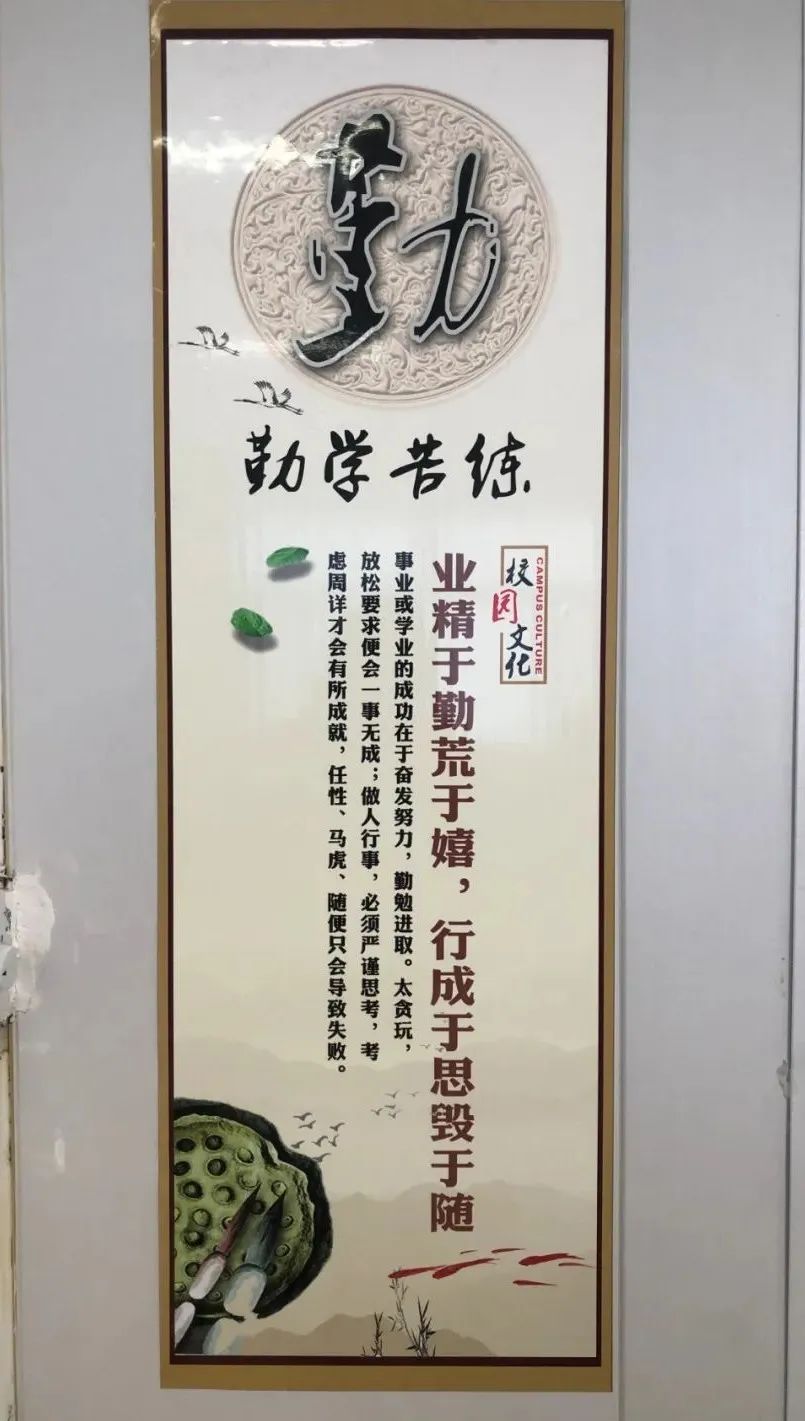 勤
勤学苦练
校园文化
CAMPUS CULTURE
业精于勤荒于嬉，行成于思毁于随
事业或学业的成功在于奋发努力，勤勉进取。太贪玩，
放松要求便会一事无成；做人行事，必须严谨思考，考
虑周详才会有所成就，任性、马虎、随便只会导致失败。